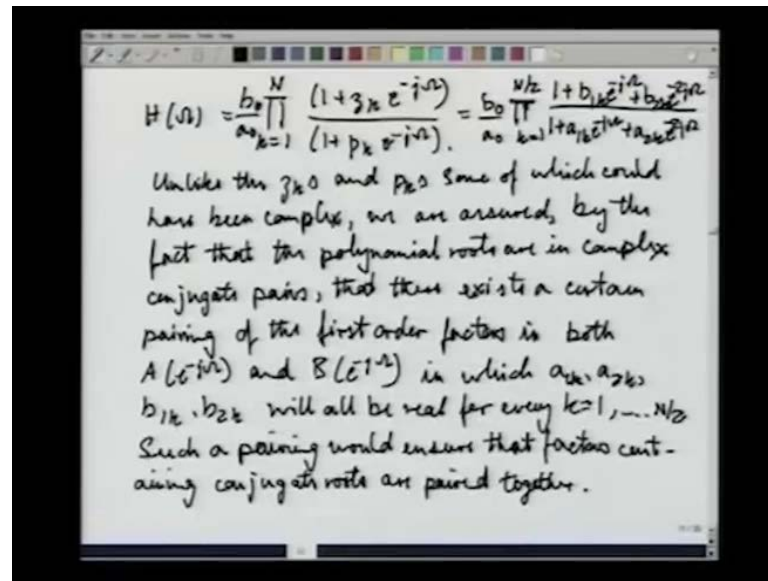 H(Ω) = b₀/a₀ ∏_{k=1}^{N} (1+z_k e^{-jΩ})/(1+p_k e^{-jΩ}). = b₀/a₀ ∏_{k=1}^{N/2} (1+b_{1k}e^{-jΩ}+b_{2k}e^{-2jΩ})/(1+a_{1k}e^{-jΩ}+a_{2k}e^{-2jΩ})
Unlike the z_ks and p_ks some of which could
have been complex, we are assured, by the
fact that the polynomial roots are in complex
conjugate pairs, that there exists a certain
pairing of the first order factors in both
A(e^{-jΩ}) and B(e^{-jΩ}) in which a_{1k}, a_{2k},
b_{1k}, b_{2k} will all be real for every k=1, .... N/2
Such a pairing would ensure that factors cont-
aining conjugate roots are paired together.